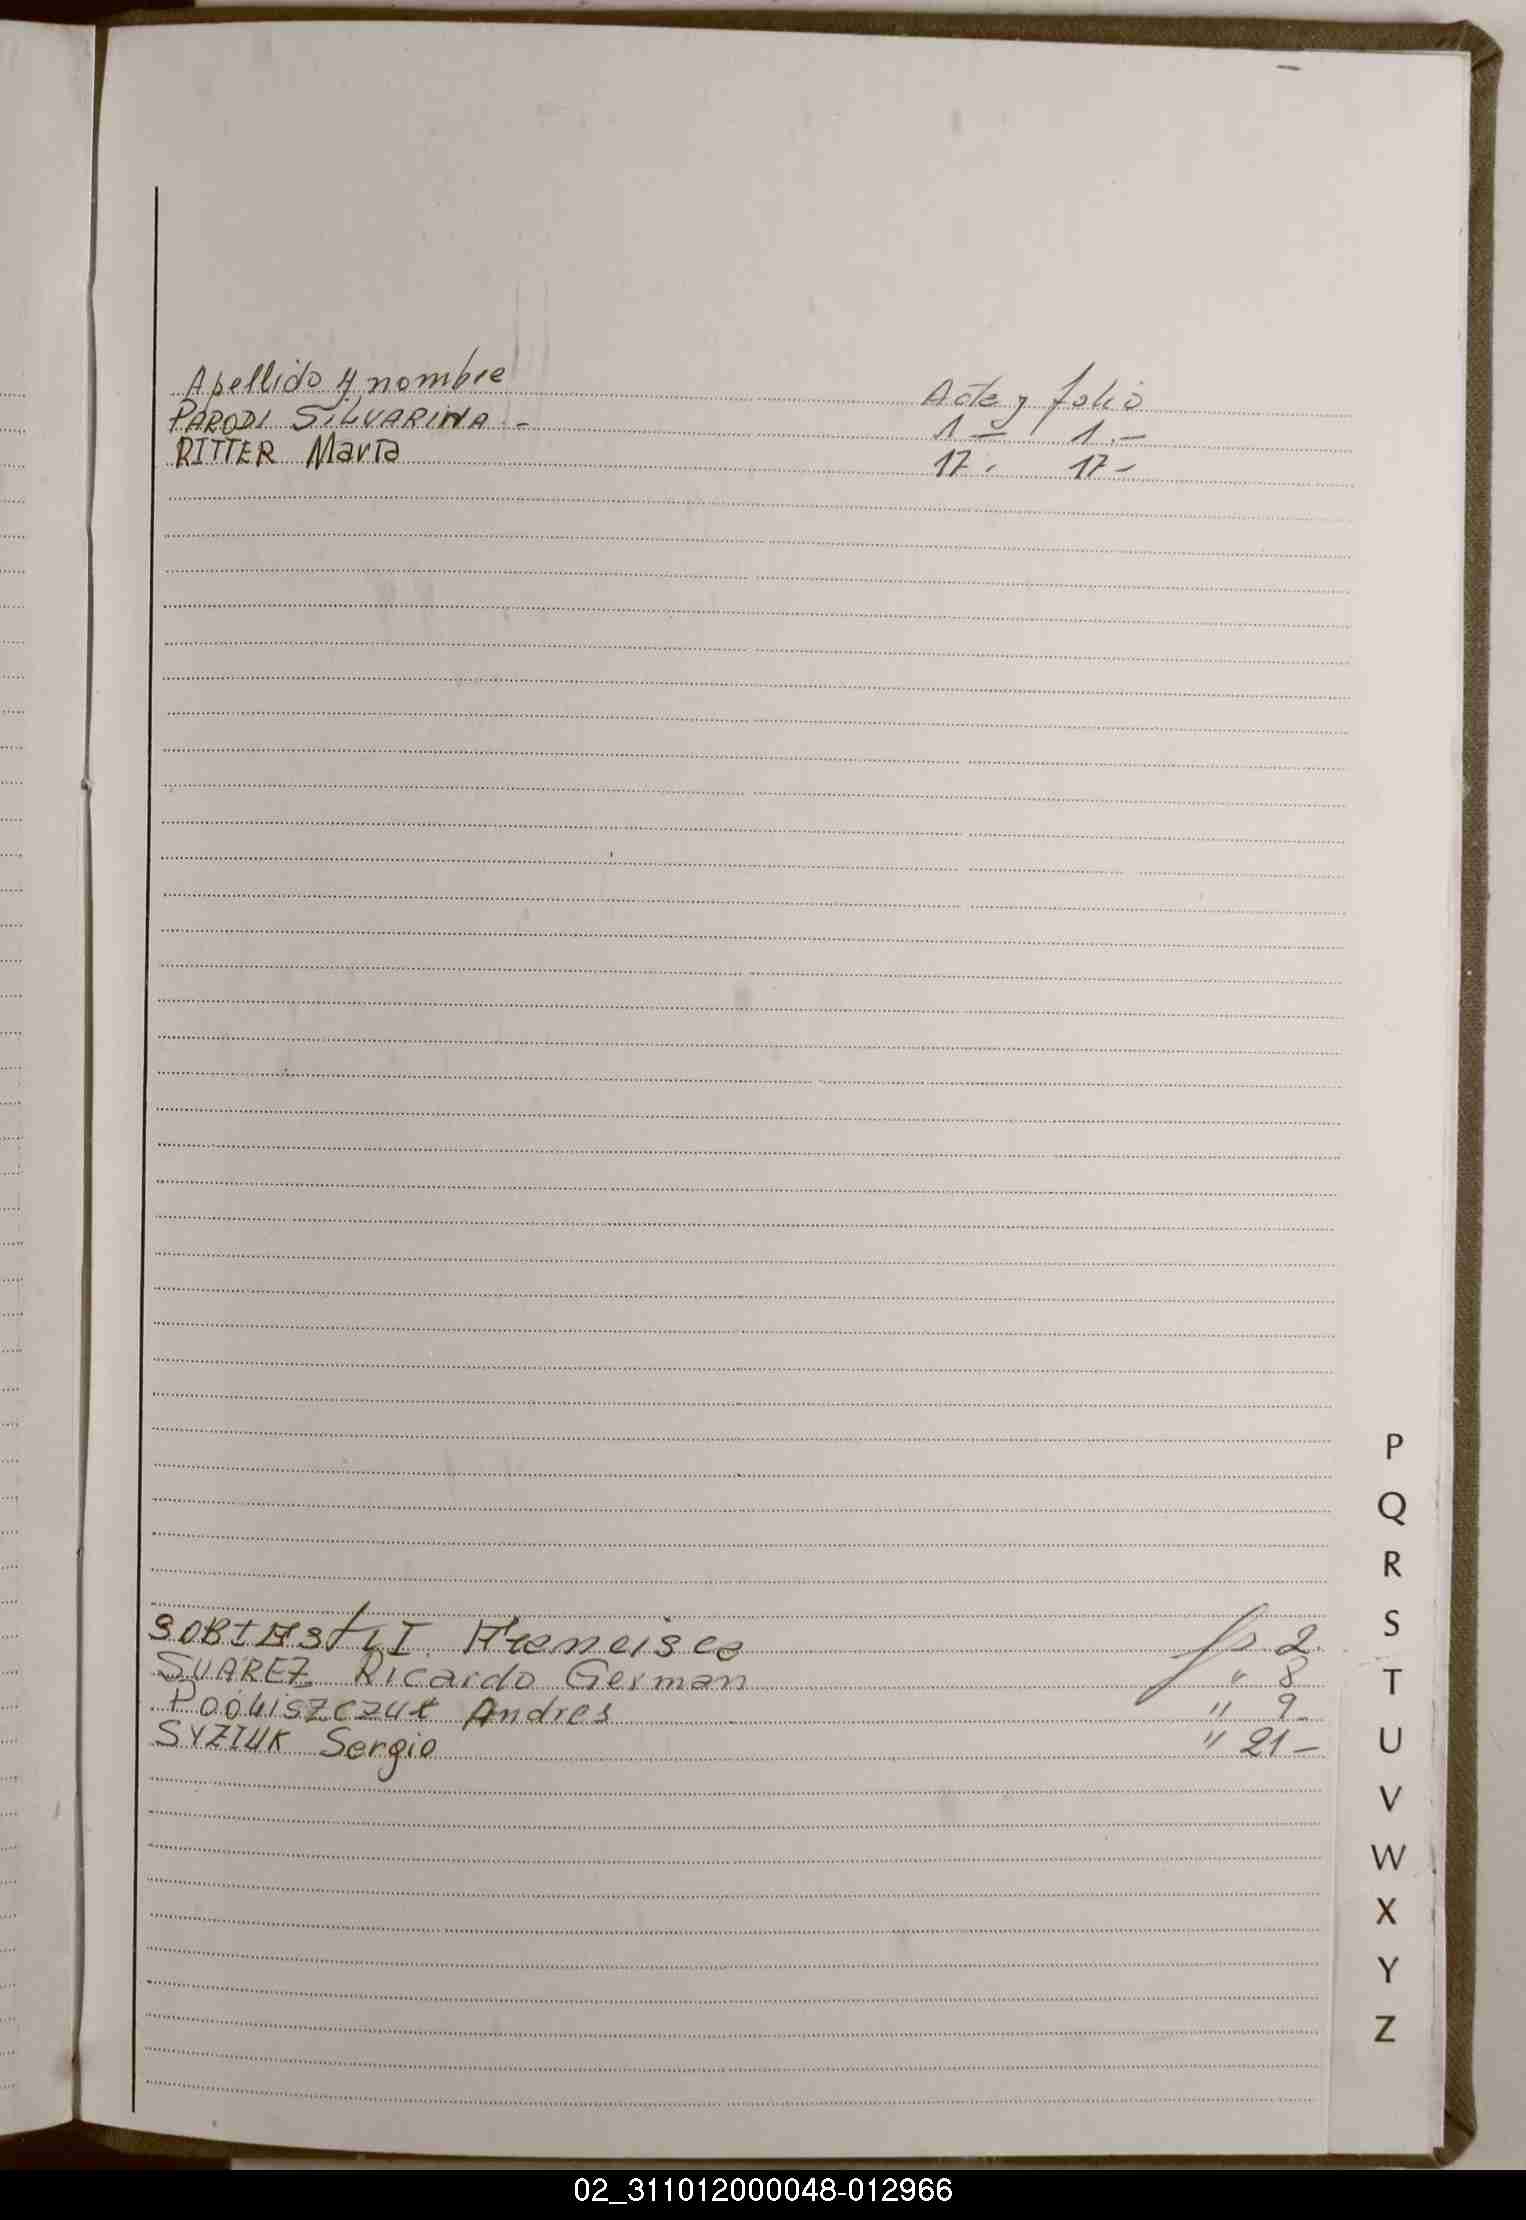 Apellido y nombre Acta y folio
PARODI SILVARINA.- 1 - 1.-
RITTER Maria 17. 17-
P
Q
R
SOBIESKI Francisco fs 2.
S
SUAREZ Ricardo German " 8
T
Andres " 9-
SYZIUK Sergio " 21-
U
V
W
X
Y
Z
02_311012000048-012966